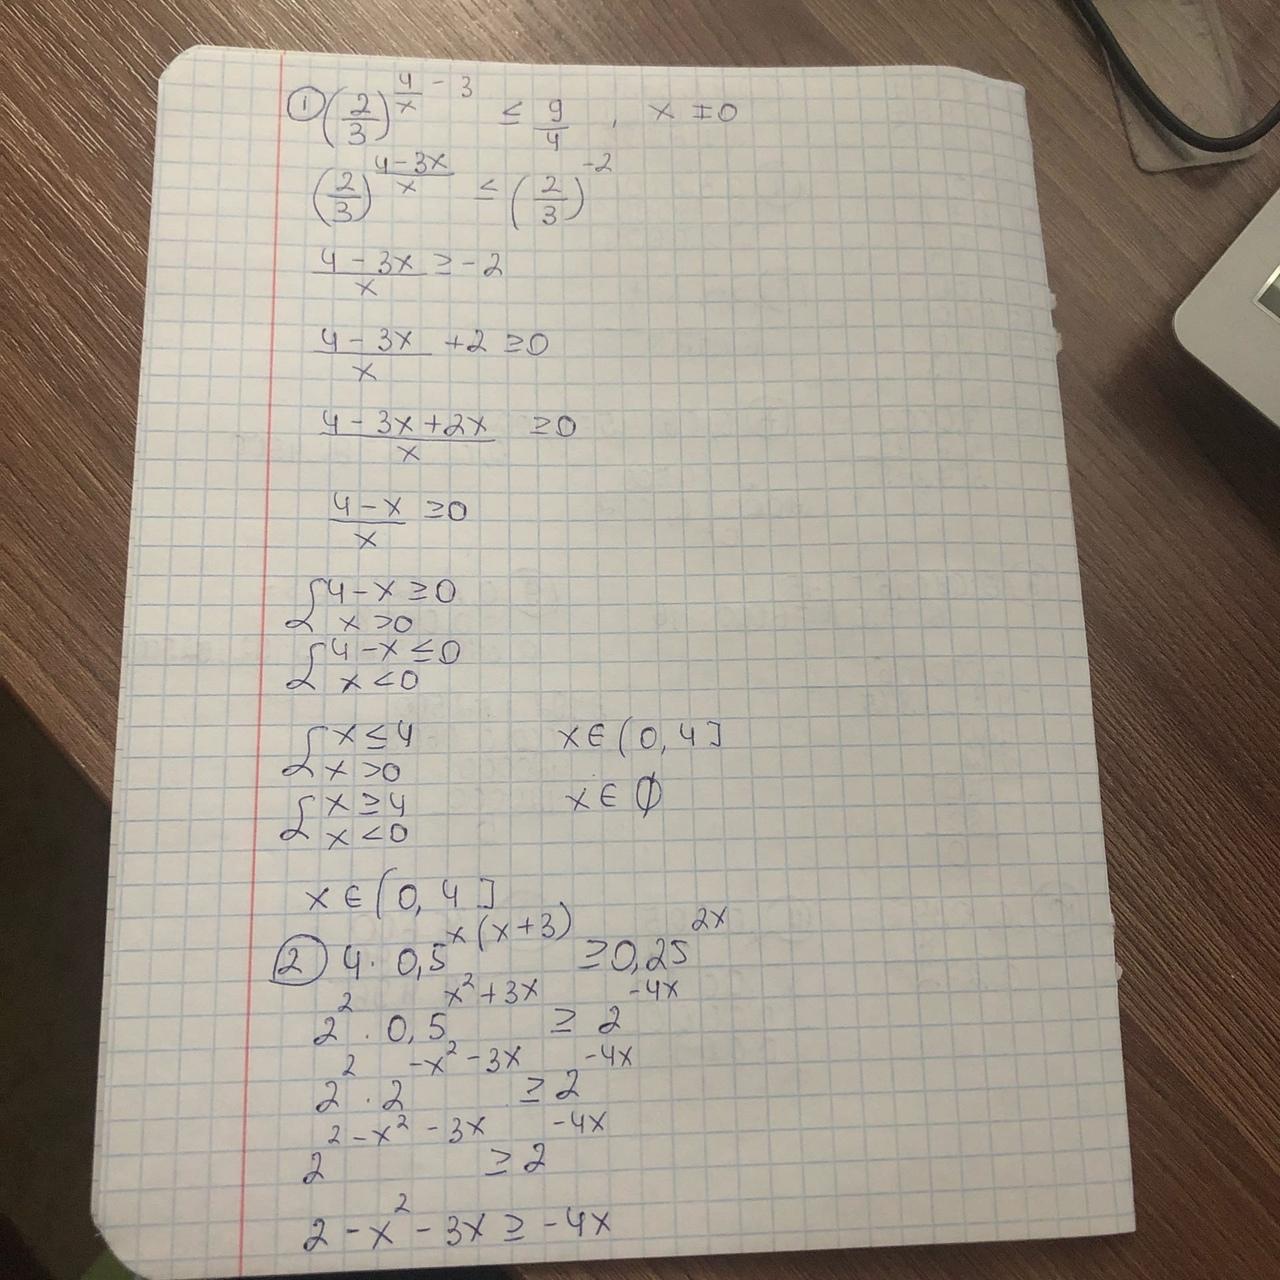 ① (2/3)^(4/x - 3) ≤ 9/4, x ≠ 0
(2/3)^((4-3x)/x) ≤ (2/3)^(-2)
(4-3x)/x ≥ -2
(4-3x)/x + 2 ≥ 0
(4-3x+2x)/x ≥ 0
(4-x)/x ≥ 0
{ 4-x ≥ 0
x > 0
{ 4-x ≤ 0
x < 0
{ x ≤ 4 x ∈ (0, 4]
x > 0
{ x ≥ 4 x ∈ ∅
x < 0
x ∈ (0, 4]
② 4 · 0,5^(x(x+3)) ≥ 0,25^(2x)
2^2 · 0,5^(x^2+3x) ≥ 2^(-4x)
2^2 · 2^(-x^2-3x) ≥ 2^(-4x)
2^(2-x^2-3x) ≥ 2^(-4x)
2 - x^2 - 3x ≥ -4x